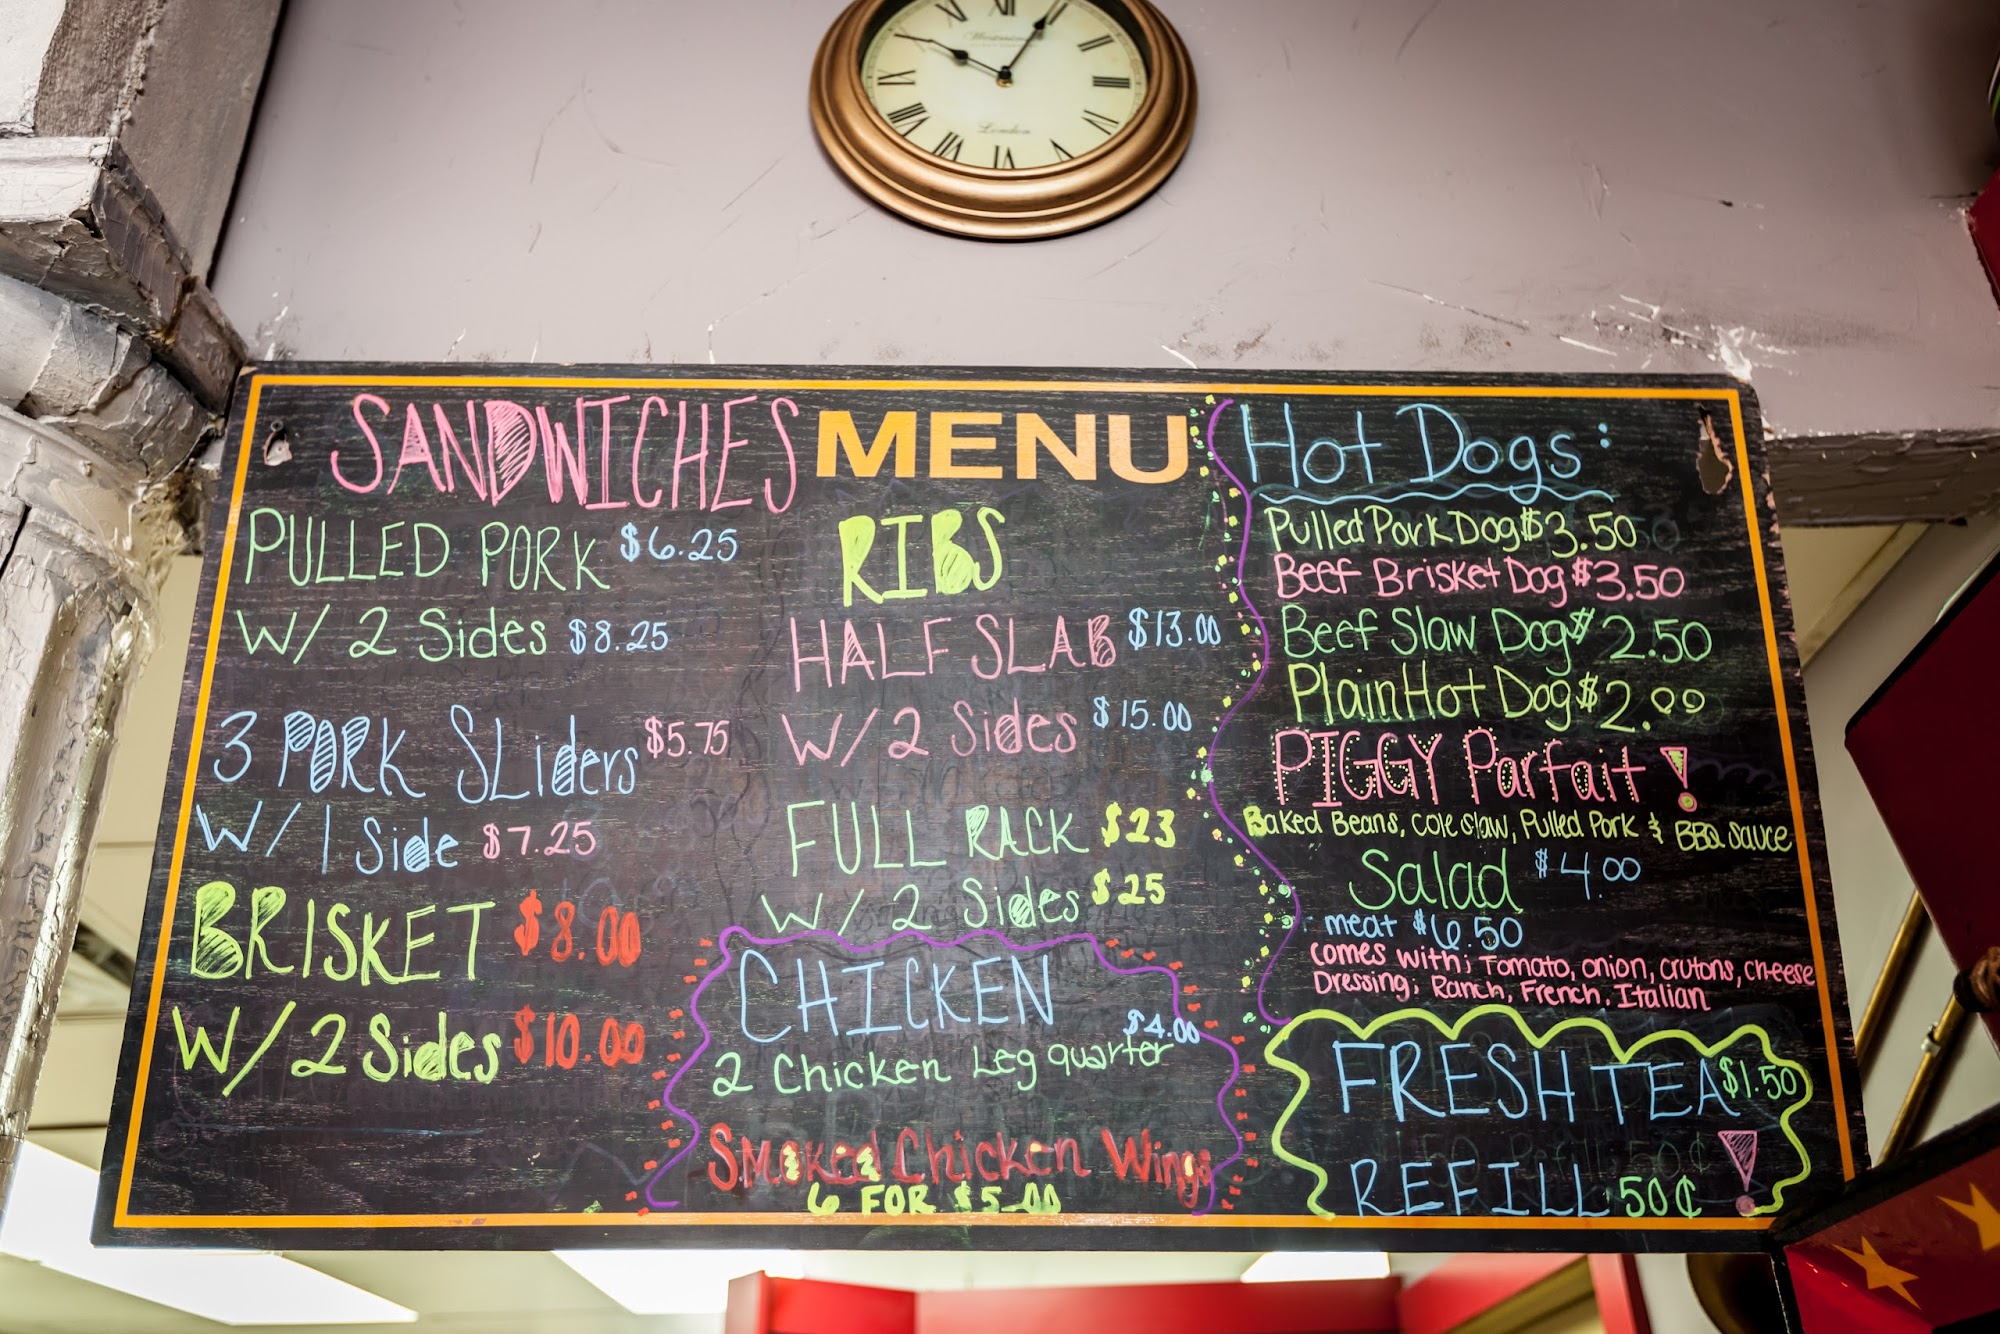 Westminster
London
MENU
SANDWICHES
PULLED PORK $6.25
W/ 2 Sides $8.25
3 PORK SLiders $5.75
W/ 1 Side $7.25
BRISKET $8.00
W/ 2 Sides $10.00
RIBS
HALF SLAB $13.00
W/ 2 Sides $15.00
FULL RACK $23
W/ 2 Sides $25
CHICKEN
$4.00
2 Chicken Leg quarter
Smoked Chicken Wings
6 FOR $5.00
Hot Dogs:
Pulled Pork Dog $3.50
Beef Brisket Dog $3.50
Beef Slaw Dog $2.50
Plain Hot Dog $2.00
PIGGY Parfait !
Baked Beans, cole slaw, Pulled Pork & BBQ sauce
Salad $4.00
meat $6.50
comes with; Tomato, onion, crutons, cheese
Dressing; Ranch, French, Italian
FRESH TEA $1.50
REFILL 50¢ !